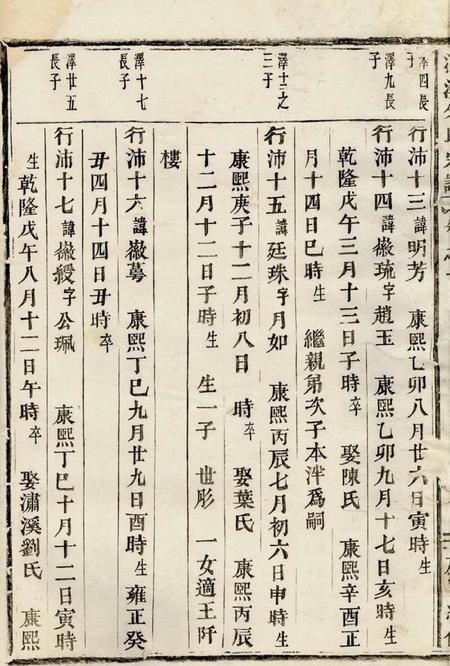 澤四長子
行沛十三諱明芳 康熙乙卯八月廿六日寅時生
澤九長子
行沛十四諱㣲琉字趙玉 康熙乙卯九月十七日亥時生
乾隆戊午三月十三日子時卒 娶陳氏 康熙辛酉正
月十四日巳時生 繼親弟次子本泮為嗣
澤十二之三子
行沛十五諱廷珠字月如 康熙丙辰七月初六日申時生
康熙庚子十二月初八日 時卒 娶葉氏 康熙丙辰
十二月十二日子時生 生一子 世彤 一女適王阡
樓
澤十七長子
行沛十六諱㣲蕚 康熙丁巳九月廿九日酉時生 雍正癸
丑四月十四日丑時卒
澤廿五長子
行沛十七諱㣲綬字公珮 康熙丁巳十月十二日寅時
生 乾隆戊午八月十二日午時卒 娶瀟溪劉氏 康熙